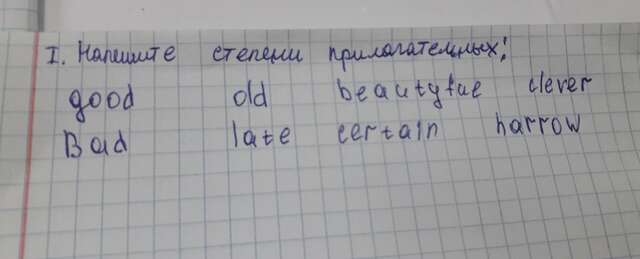 I. Напишите степени прилагательных:
good old beautyfue clever
Bad late certain narrow